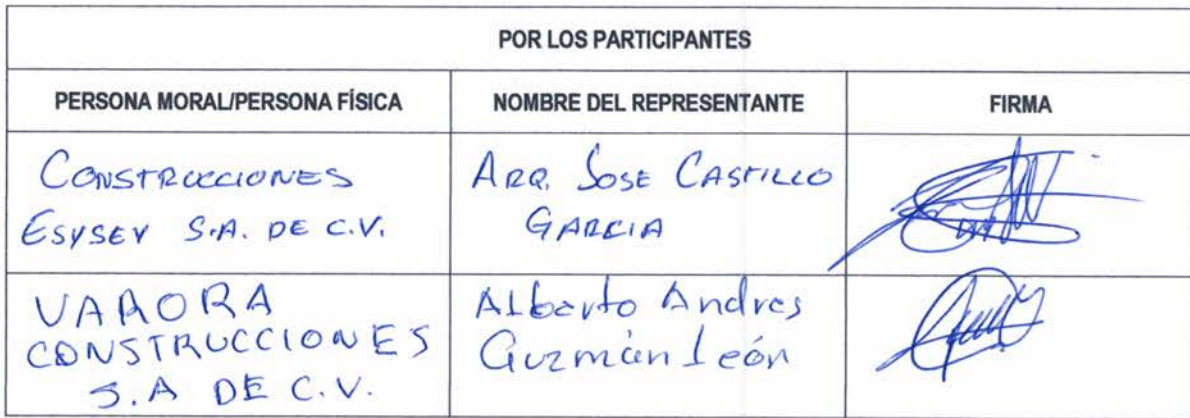 POR LOS PARTICIPANTES
PERSONA MORAL/PERSONA FÍSICA NOMBRE DEL REPRESENTANTE FIRMA
CONSTRUCCIONES
ESYSEV S.A. DE C.V.
ARQ. JOSE CASTILLO
GARCIA
VARORA
CONSTRUCCIONES
S.A DE C.V.
Alberto Andres
Guzmán León